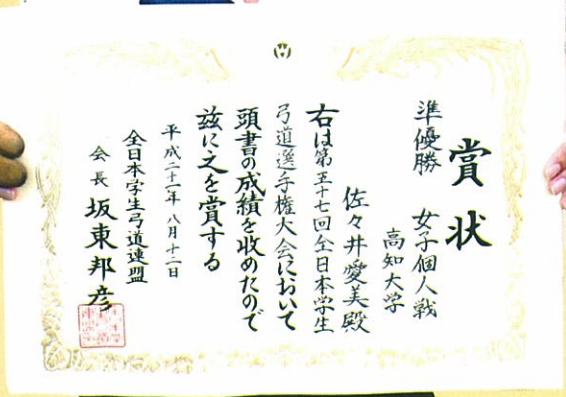 賞状
準優勝 女子個人戦
高知大学
佐々井愛美殿
右は第五十七回全日本学生
弓道選手権大会において
頭書の成績を收めたので
茲に之を賞する
平成二十一年八月十二日
全日本学生弓道連盟
会長 坂東邦彦